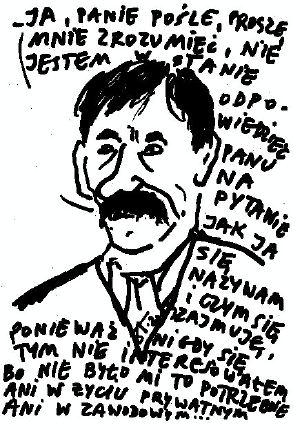 – JA, PANIE POŚLE, PROSZĘ
MNIE ZROZUMIEĆ, NIE
JESTEM W STANIE
ODPO-
WIEDZIEĆ
PANU
NA
PYTANIE
JAK JA
SIĘ
NAZYWAM
I CZYM SIĘ
ZAJMUJĘ,
PONIEWAŻ NIGDY SIĘ
TYM NIE INTERESOWAŁEM
BO NIE BYŁO MI TO POTRZEBNE
ANI W ŻYCIU PRYWATNYM
ANI W ZAWODOWYM...